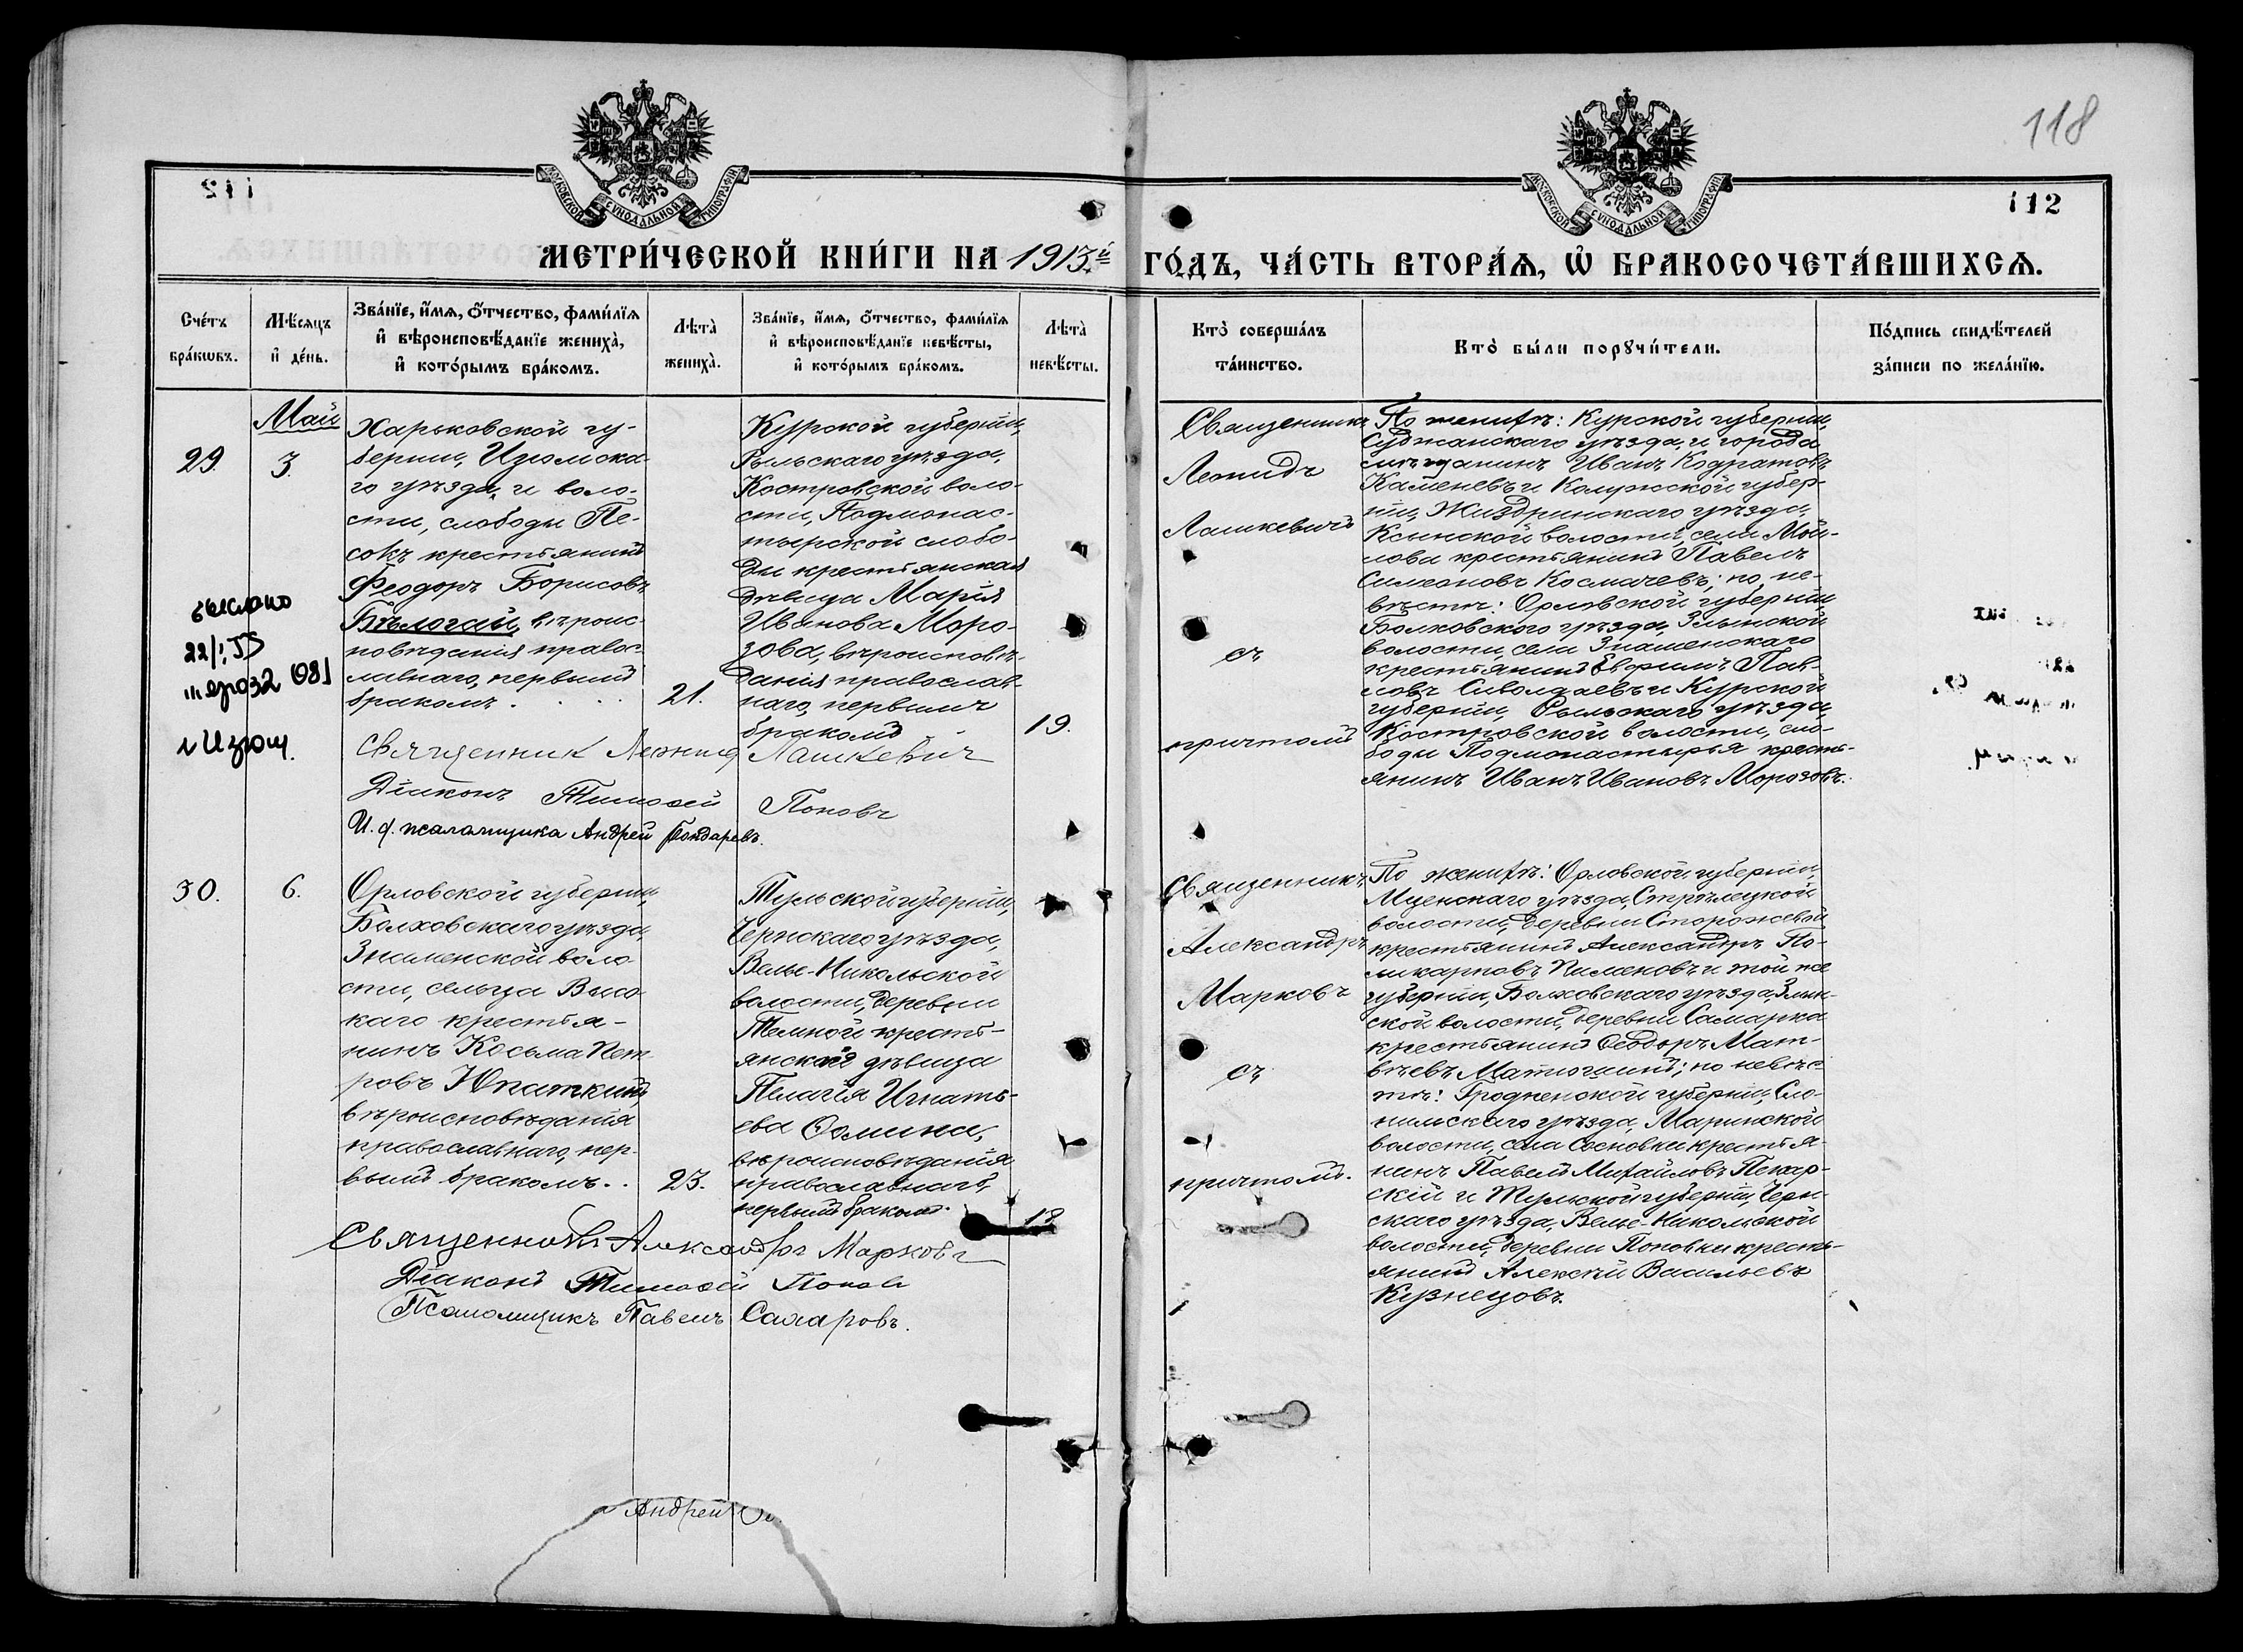 118
112
МОСКОВСКОЙ СѴНОДАЛЬНОЙ ТИПОГРАФІИ
МОСКОВСКОЙ СѴНОДАЛЬНОЙ ТИПОГРАФІИ
МЕТРИ́ЧЕСКОЙ КНИ́ГИ НА 1913й ГО́ДЪ, ЧА́СТЬ ВТОРА́Ѧ, Ѡ҆ БРАКОСОЧЕТА́ВШИХСѦ.
Сче́тъ бра́кѡвъ.
Мѣ́сяцъ и҆ де́нь.
Зва́нїе, и҆́мѧ, ѻ҆́тчество, фами́лїѧ
и҆ вѣроисповѣ́данїе жениха̀,
и҆ кото́рымъ бра́комъ.
Лѣта̀ жениха̀.
Зва́нїе, и҆́мѧ, ѻ҆́тчество, фами́лїѧ
и҆ вѣроисповѣ́данїе невѣ́сты,
и҆ кото́рымъ бра́комъ.
Лѣта̀ невѣ́сты.
Кто̀ соверша́лъ та́инство.
Кто̀ бы́ли порꙋчи́тели.
По́дпись свидѣ́телей за́писи по жела́нїю.
29.
Май
3.
Харьковской гу-
берніи, Изюмска-
го уѣзда, и воло-
сти, слободы Пе-
сокъ крестьянинъ
Феодоръ Борисовъ
Бѣлогай, вѣроис-
повѣданія правос-
лавнаго, первымъ
бракомъ . . . .
21.
Курской губерніи,
Рыльскаго уѣзда,
Костровской воло-
сти, Подмонас-
тырской слобо-
ды крестьянская
дѣвица Марія
Иванова Моро-
зова, вѣроисповѣ-
данія православ-
наго, первымъ
бракомъ
19.
Священникъ
Леонидъ
Лашкевичъ
съ
причтомъ
По женихѣ: Курской губерніи,
Суджанскаго уѣзда, и города
мѣщанинъ Иванъ Кодратовъ
Каменевъ и Калужской губер-
ніи, Жиздринскаго уѣзда,
Ксынской волости, села Мой-
лова крестьянинъ Павелъ
Симеоновъ Космачевъ; по не-
вѣстѣ: Орловской губерніи
Болховского уѣзда, Злынской
волости, села Знаменскаго
крестьянинъ Евфимъ Пав-
ловъ Сиволдаевъ и Курской
губерніи, Рыльскаго уѣзда,
Костровской волости, сло-
боды Подмонастырья кресть-
янинъ Иванъ Ивановъ Морозовъ.
выслано
22/I
1981
г Изюм.
Священник Леонид Лашкевич
Діаконъ Тимоѳей Поповъ
И. д. псаломщика Андрей Бондаревъ.
30.
6.
Орловской губерніи,
Болховскаго уѣзда,
Знаменской воло-
сти, сельца Высо-
каго крестья-
нинъ Косьма Пет-
ровъ Юпаткинъ
вѣроисповѣданія
православнаго, пер-
вымъ бракомъ. .
23.
Тульской губерніи,
Чернскаго уѣзда,
Велье-Никольской
волости, деревни
Темной кресть-
янская дѣвица
Пелагія Игнать-
ева Ѳомина,
вѣроисповѣданія
православнаго,
первымъ бракомъ.
18
Священникъ
Александръ
Марковъ
съ
причтомъ.
По женихѣ: Орловской губерніи,
Мценскаго уѣзда, Стрѣлецкой
волости, деревни Сторожевой
крестьянинъ Александръ По-
ликарповъ Пименовъ и той же
губерніи, Болховскаго уѣзда, Злын-
ской волости, деревни Самарка
крестьянинъ Ѳеодоръ Мат-
вѣевъ Матюшинъ; по невѣс-
тѣ: Гродненской губерніи, Сло-
нимскаго уѣзда, Маринской
волости, села Сосновки крестья-
нинъ Павелъ Михайловъ Пекар-
скій и Тульской губерніи, Черн-
скаго уѣзда, Велье-Никольской
волости, деревни Поповки кресть-
янинъ Алексѣй Васильевъ
Кузнецовъ.
Священникъ Александръ Марковъ
Діаконъ Тимоѳей Поповъ
Псаломщикъ Павелъ Сахаровъ.
Андрей